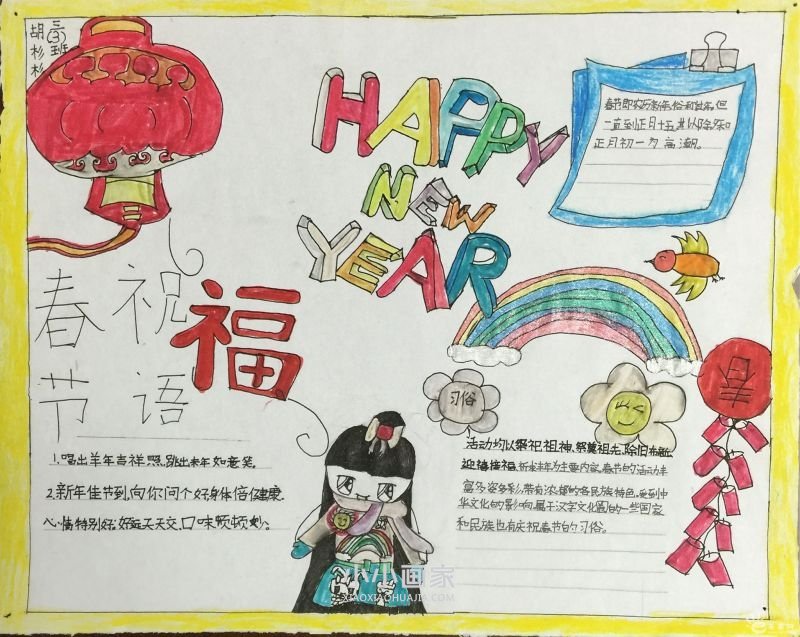 三(3)班
胡杉杉
HAPPY
NEW
YEAR
春节即农历新年,俗称过年,但
一直到正月十五,其以除夕和
正月初一为高潮。
春祝
节语
福
习俗
1.唱出羊年吉祥照,跳出未年如意笑。
2.新年佳节到,向你问个好身体倍健康
心情特别好,好运天天交,口味顿顿妙。
活动均以祭祀祖神、祭奠祖先、除旧布新、
迎禧接福、祈求丰年为主要内容。春节的活动丰
富多姿多彩,带有浓郁的各民族特色。受到中
华文化的影响,属于汉字文化圈的一些国家
和民族也有庆祝春节的习俗。
小小画家
XIAOXIAOHUAJIA.COM